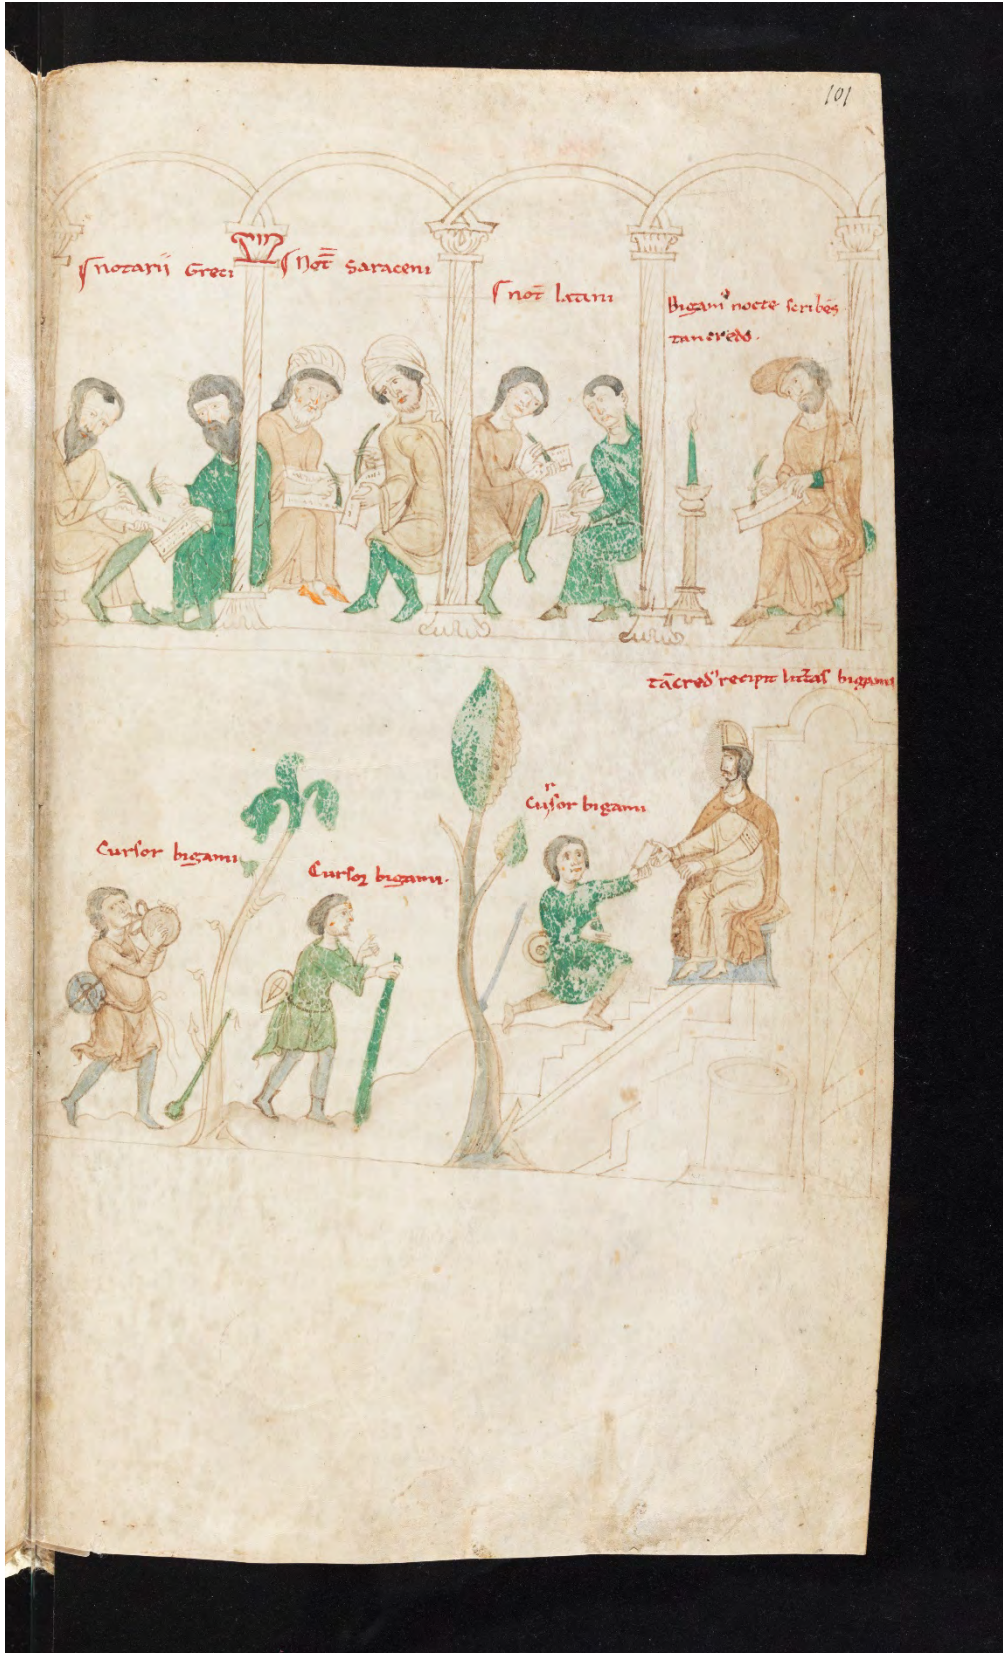 101
notarii Greci
Not̅ Saraceni
not̅ latini
Bigamꝰ nocte scribēs
tancredo.
tācredꝰ recipit litt̅as bigami
Cursor bigami
Cursor bigami
Cursoꝝ bigami.